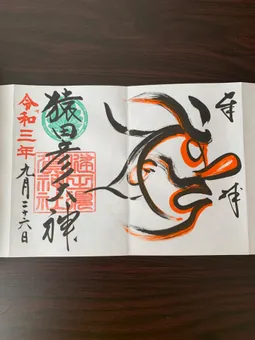 奉拝
猿田彦大神
令和三年
九月二十六日